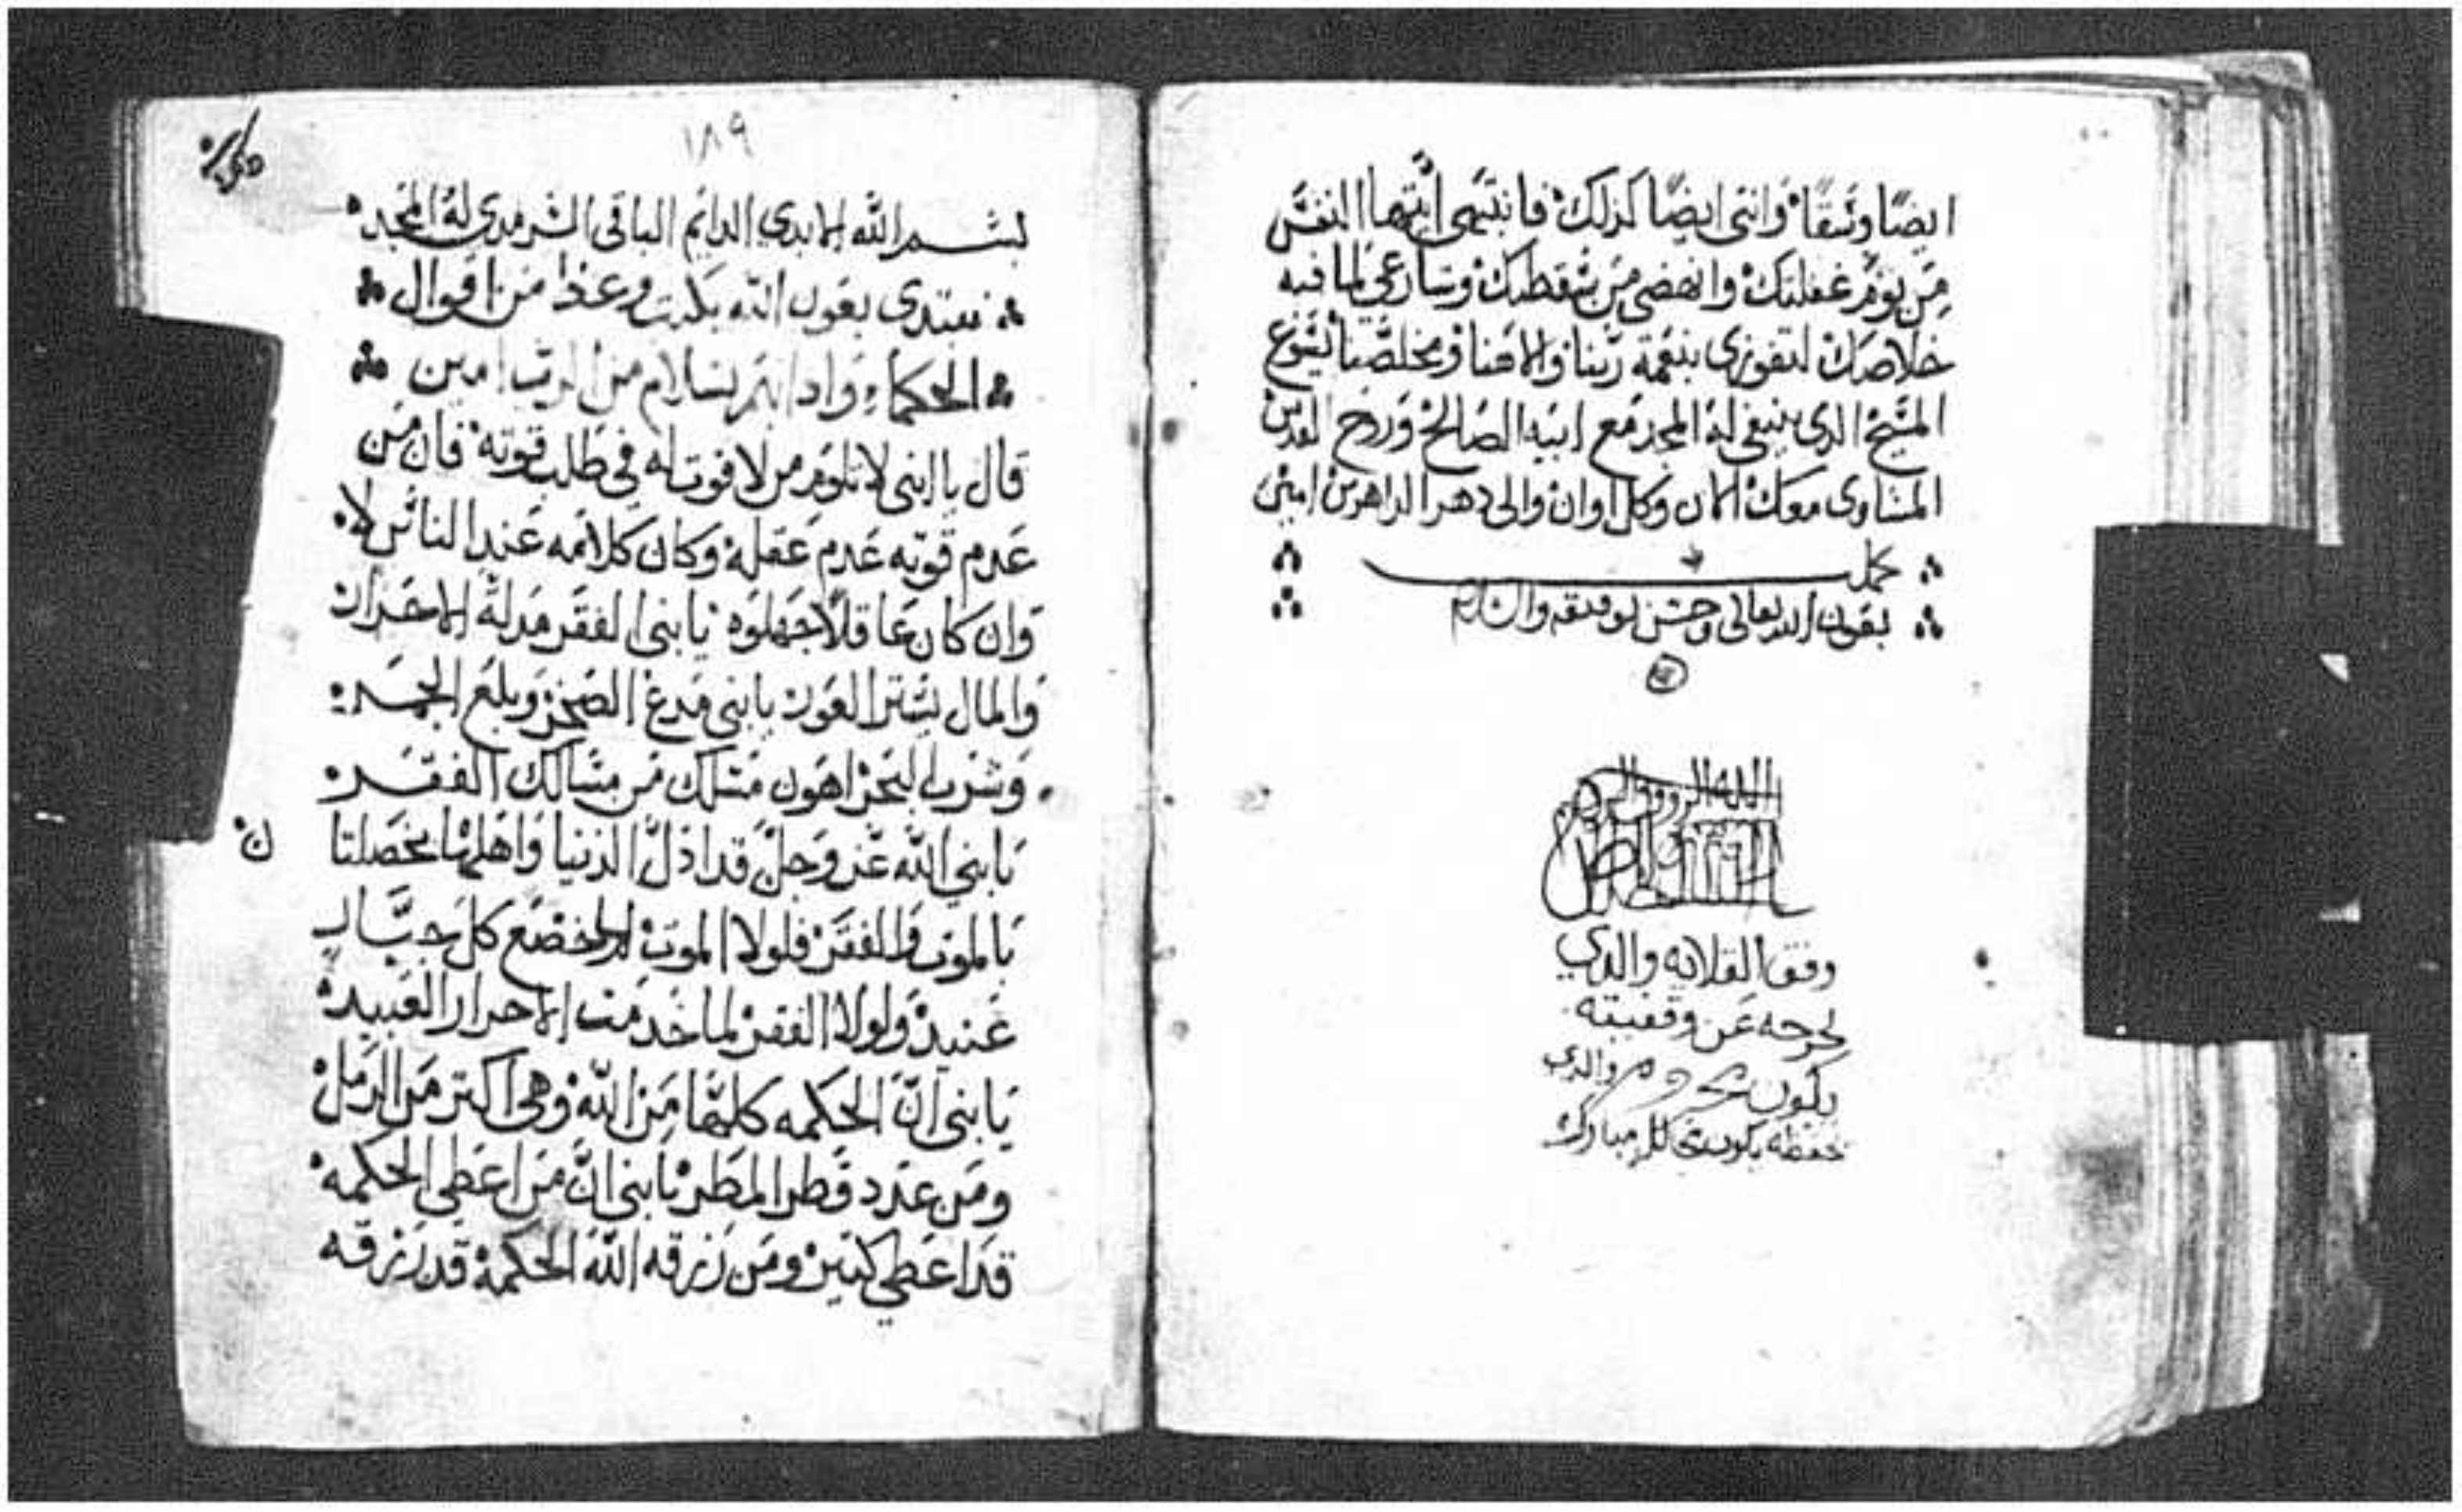 ايضًا وثيقًا وانتي ايضًا كذلك فانتبهى ايتها النفس
من نوم غفلتك وانهضى من سقطتك وسارعي لما فيه
خلاصك لتفوزى بنعمة ربنا والاهنا ومخلصنا يسوع
المسيح الدى ينبغى له المجد مع ابيه الصالح وروح القدس
المساوى معك الان وكل اوان والى دهر الداهرين امين
كمل
بعون الله تعالى وحسن توفيقه
وقف القلايه والدي
يخرجه عن وقفيته
يكون محروم والدي
حفظه يكون مبارك
١٨٩
بسم الله الابدي الدايم الباقى السرمدى له المجد
نبتدى بعون الله بكتب وعظ من اقوال
الحكماء بسلام من الرب امين
قال يا ابنى لا تلوم من لا قوت له في طلب قوته فان من
عدم قوته عدم عقله وكان كلامه عند الناس لا
وان كان عاقلًا جهلوه يا بنى الفقر مدلة الاحرار
والمال يستر العور يا بنى مدغ الصخر وبلع الجمر
وشرب البحر اهون مسلك من مسالك الفقر
يا بني الله عز وجل قد ادل الدنيا واهلها بخصلتا ن
بالموت والفقر فلولا الموت لما خضع كل جبار
عنيد ولولا الفقر لما خدمت الاحرار العبيد
يا بنى انّ الحكمه كلها من الله وهى اكتر من الرمل
ومن عدد قطر المطر يا بنى انّ من اعطى الحكمه
قد اعطي كتير ومن رزقه الله الحكمة قد رزقه